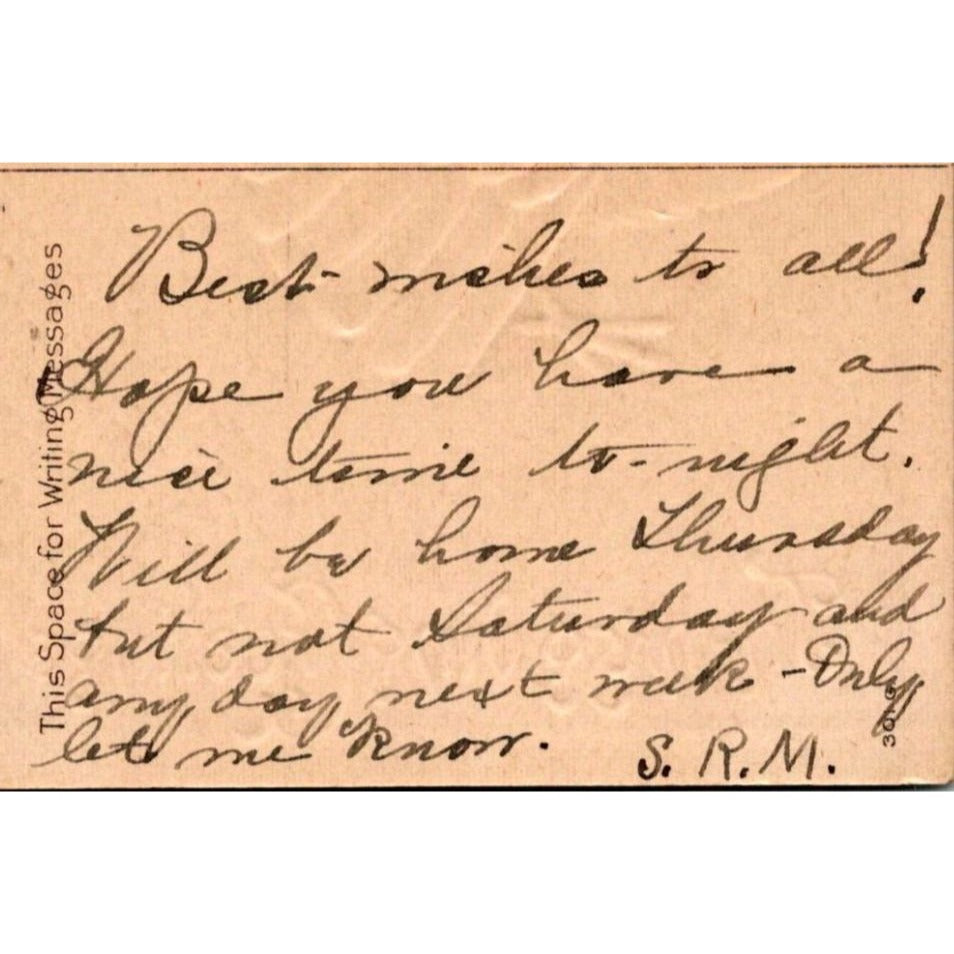 This Space for Writing Messages
Best wishes to all!
Hope you have a
nice time to-night.
Will be home Thursday
but not Saturday and
any day next week - Only
let me know.
S. R. M.